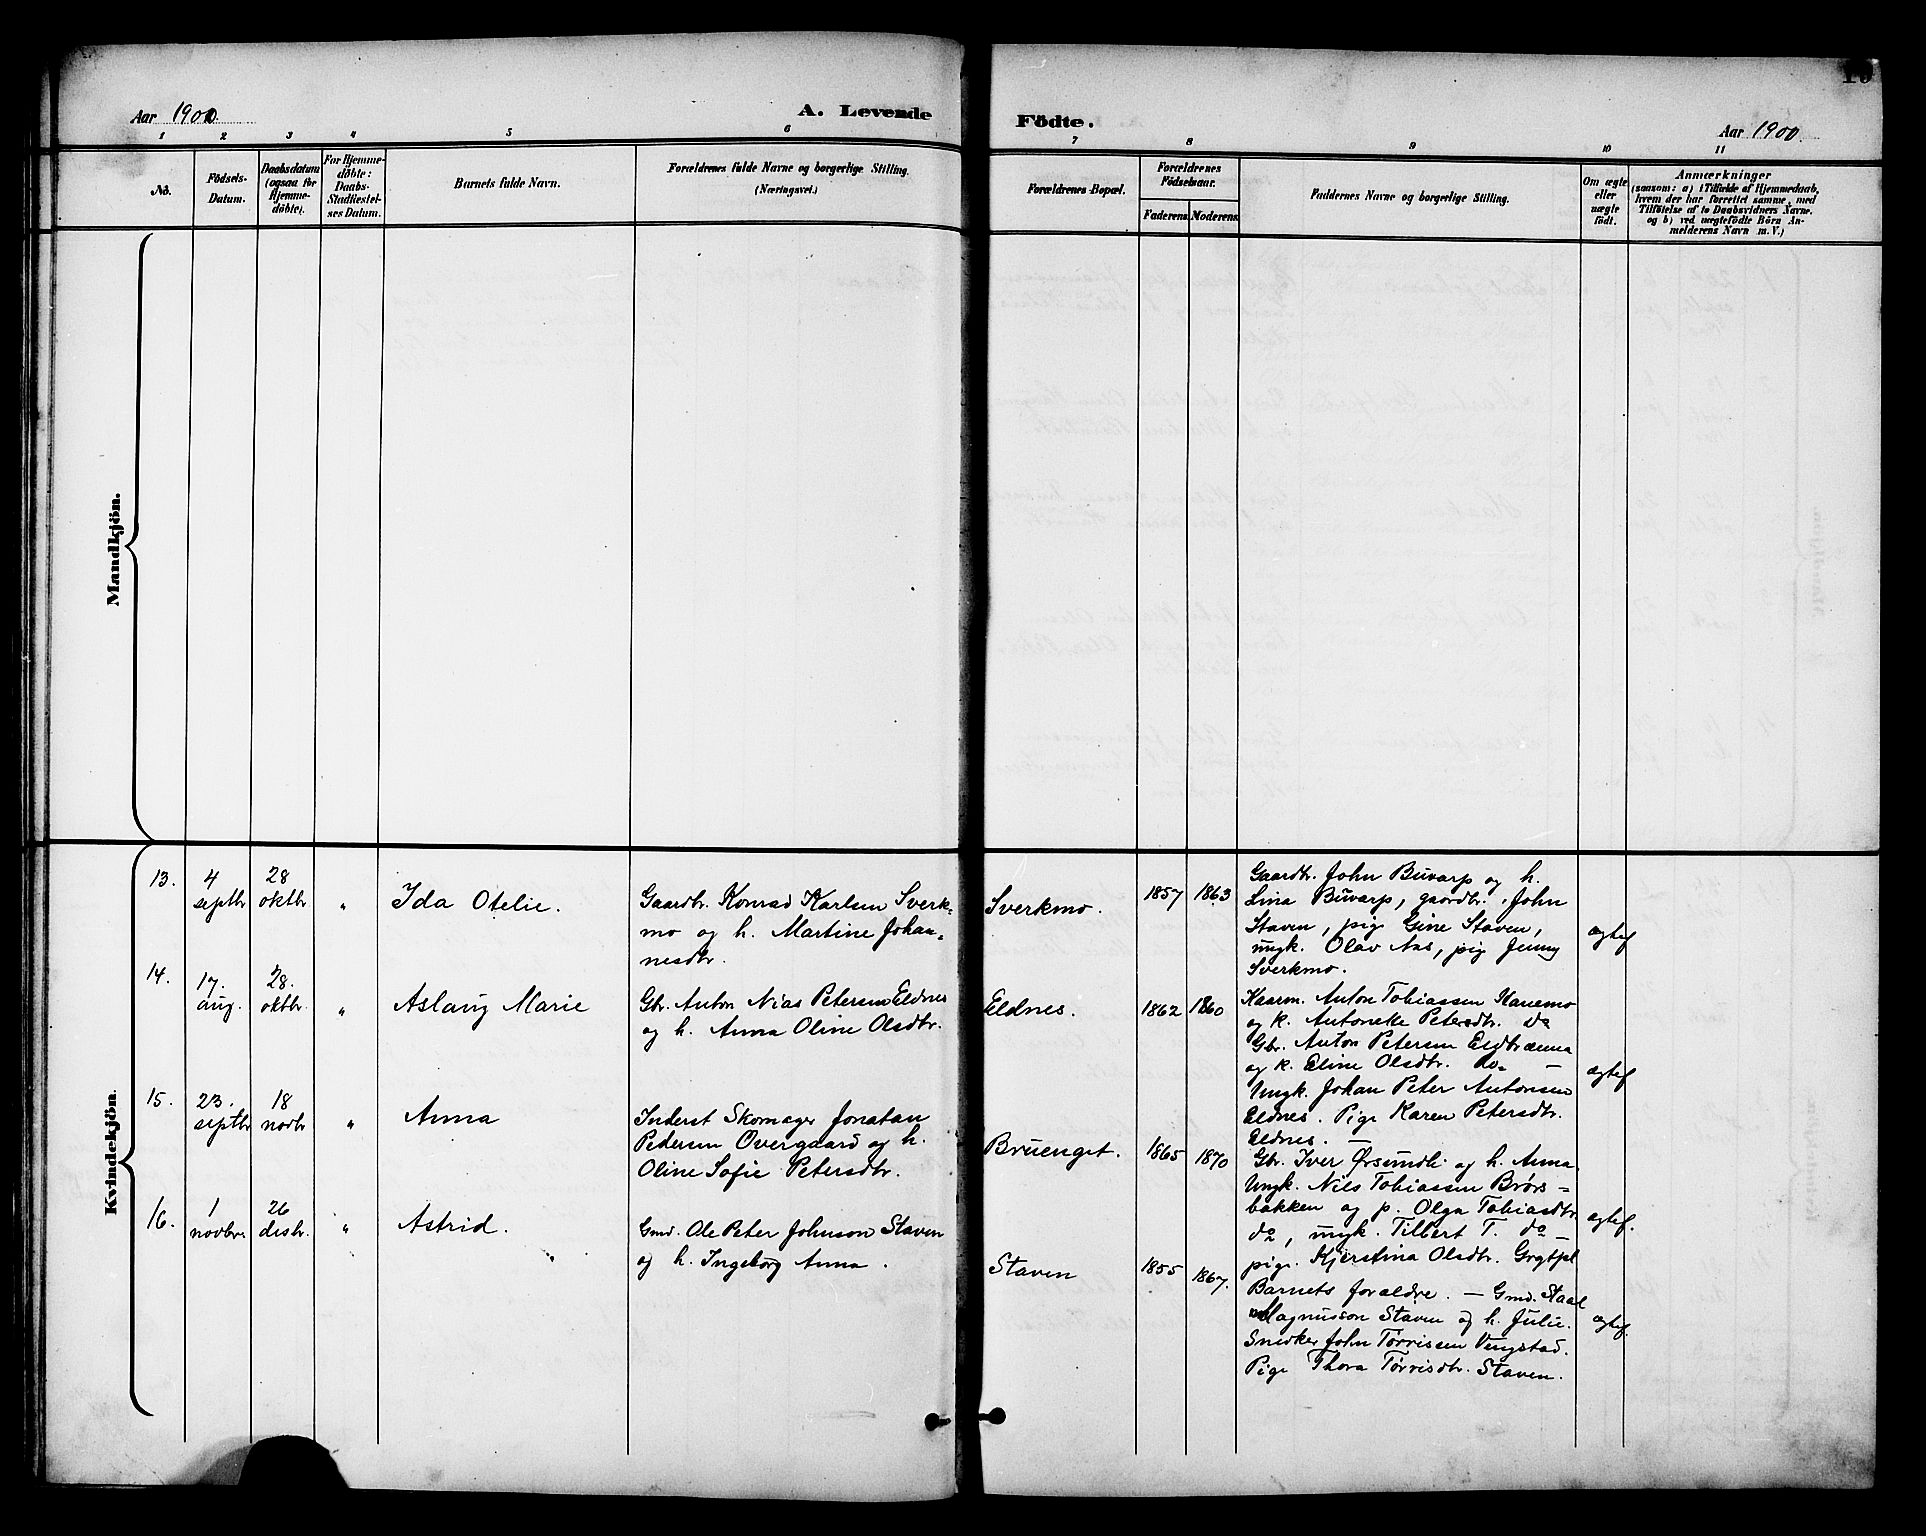 10
Aar 1900.
A. Levende
Födte.
Aar 1900.
1 2 3 4 5 6 7 8 9 10 11
No.
Födsels-
Datum.
Daabsdatum
(ogsaa for
Hjemme-
döbte).
For Hjemme-
döbte:
Daabs-
Stadfæstel-
ses Datum.
Barnets fulde Navn.
Forældrenes fulde Navne og borgerlige Stilling.
(Næringsvei.)
Forældrenes Bopæl.
Forældrenes
Födselsaar.
Faderens.
Moderens.
Faddernes Navne og borgerlige Stilling.
Om ægte
eller
uægte
födt.
Anmærkninger
(saasom: a) i Tilfælde af Hjemmedaab,
hvem der har forrettet samme, med
Tilföielse af to Daabsvidners Navne.
og b) ved uægtefödte Börn An-
melderens Navn m. V.)
Mandkjön.
Kvindekjön.
13.
4
septbr
28
oktbr
"
Ida Otelie.
Gaardbr. Konrad Karlsen Sverk-
mo og h. Martine Johan-
nesdtr.
Sverkmo.
1857
1863
Gaardbr. John Buvarp og h.
Lina Buvarp, gaardbr. John
Staven, pige Gine Staven,
ungk. Olav Aas, pig Jenny
Sverkmo.
ægtef
14.
17.
aug.
28.
oktbr.
"
Aslaug Marie
Gbr. Anton Nias Petersen Eldnes
og h. Anna Oline Olsdtr.
Eldnes.
1862
1860
Kaarm. Anton Tobiassen Hanemo
og k. Antonette Petersdtr. do
Gbr. Anton Petersen
og k. Eline Olsdtr. do. —
Ungk. Johan Peter Antonsen
Eldnes. Pige Karen Petersdtr.
Eldnes. —
ægtef
15.
23.
septbr
18
novbr
"
Anna
Inderst Skomager Jonatan
Pedersen Overgaard og h.
Oline Sofie Petersdtr.
Bruenget.
1865
1870
Gbr. Iver Ørsundli og h. Anna
Ungk. Nils Tobiassen Brørs-
bakken og p. Olga Tobiasdtr.
do, ungk. Tilbert T. do —
pige. Kjerstina Olsdtr.
ægtef.
16.
1
novbr.
26
desbr.
"
Astrid.
Gmd. Ole Peter Johnson Staven
og h. Ingeborg Anna.
Staven
1855
1867.
Barnets forældre. — Gmd. Staal
Magnusson Staven og h. Julie.
Snedker John Tørrissen Vengstad.
Pige Thora Tørrisdtr. Staven.
ægtef.